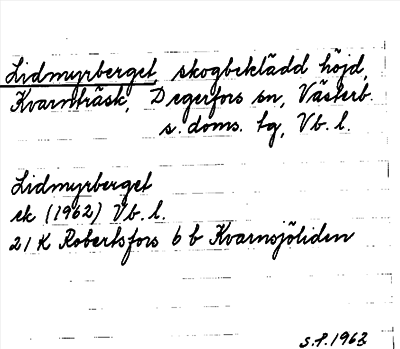 Lidmyrberget, skogbeklädd höjd,
Kvarnträsk, Degerfors sn, Västerb.
s. doms. tg, Vb. l.
Lidmyrberget
ek (1962) Vb. l.
21 K Robertsfors 6 b Kvarnsjöliden
S.F. 1963